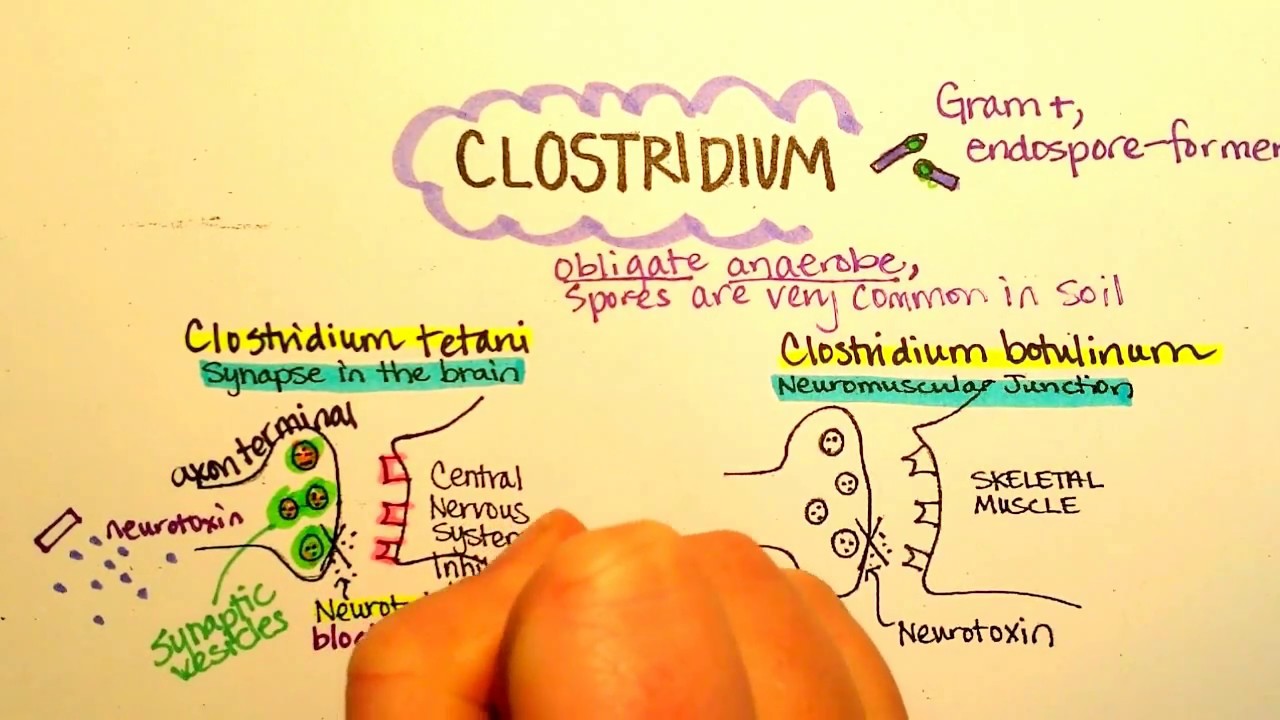 CLOSTRIDIUM
Gram +,
endospore-former
obligate anaerobe,
spores are very common in soil
Clostridium tetani
Synapse in the brain
axon terminal
neurotoxin
Synaptic
vesicles
Central
Nervous
System
Clostridium botulinum
Neuromuscular Junction
SKELETAL
MUSCLE
Neurotoxin